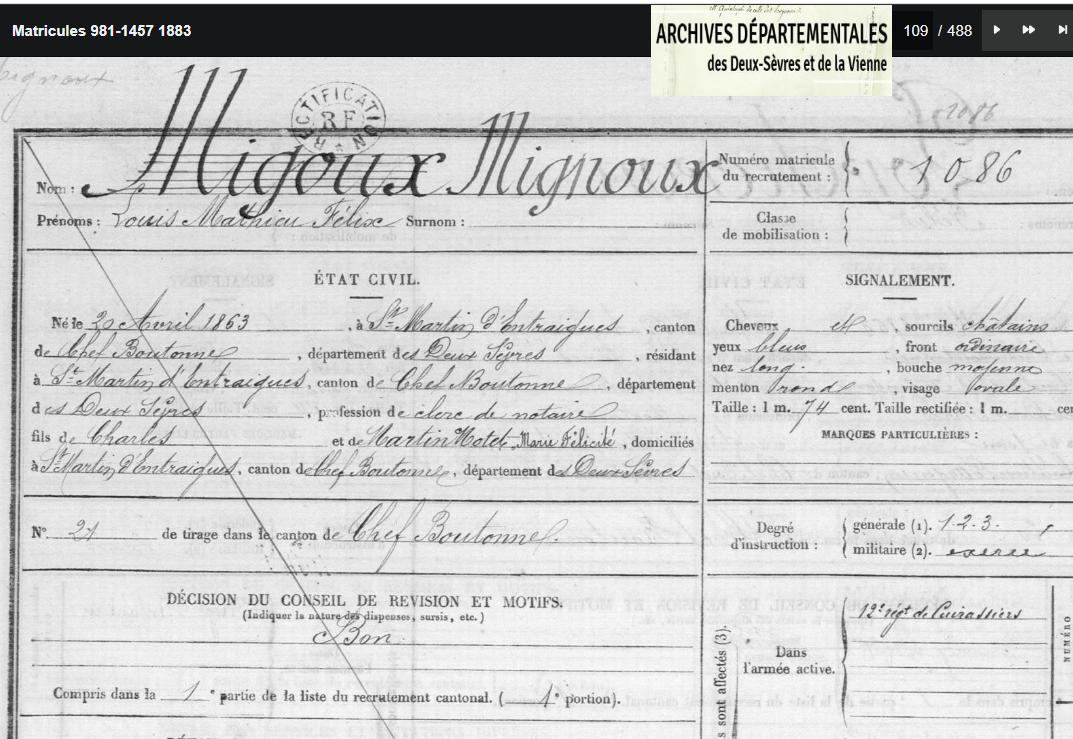 Matricules 981-1457 1883
ARCHIVES DÉPARTEMENTALES
des Deux-Sèvres et de la Vienne
109 / 488
RECTIFICATION
RF
2086
Nom : Migoux Mignoux
Prénoms : Louis Mathieu Félix Surnom :
Numéro matricule
du recrutement : 1086
Classe
de mobilisation :
ÉTAT CIVIL.
Né le 20 Avril 1863, à St Martin d'Entraigues, canton
de Chef Boutonne, département des Deux Sèvres, résidant
à St Martin d'Entraigues, canton de Chef Boutonne, département
des Deux Sèvres, profession de clerc de notaire
fils de Charles et de Martin Motet Marie Félicité, domiciliés
à St Martin d'Entraigues, canton de Chef Boutonne, département des Deux Sèvres
SIGNALEMENT.
Cheveux et, sourcils châtains
yeux bleus, front ordinaire
nez long, bouche moyenne
menton rond, visage ovale
Taille : 1 m. 74 cent. Taille rectifiée : 1 m. cen
MARQUES PARTICULIÈRES :
N° 21 de tirage dans le canton de Chef Boutonne.
Degré
d'instruction :
générale (1). 1.2.3.
militaire (2). exercé
DÉCISION DU CONSEIL DE REVISION ET MOTIFS.
(Indiquer la nature des dispenses, sursis, etc.)
Bon
Compris dans la 1e partie de la liste du recrutement cantonal. (1e portion).
s sont affectés (3).
Dans
l'armée active.
12e régt de Cuirassiers
NUMÉRO